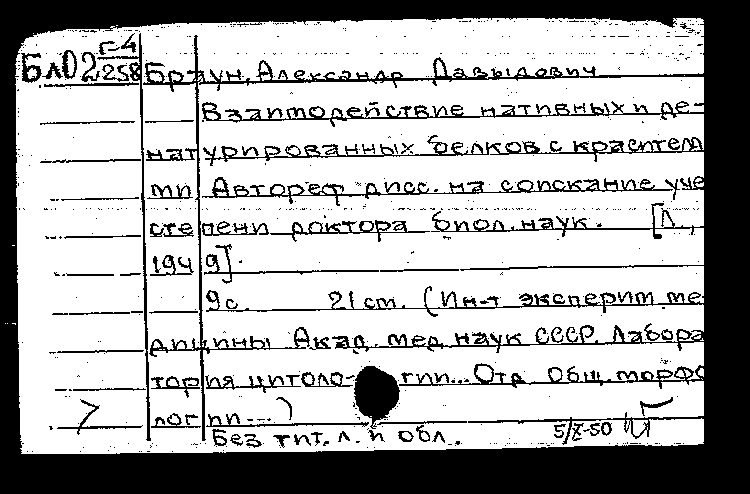 Бл02 Г-4/2258
Браун, Александр Давыдович
Взаимодействие нативных и де-
натурированных белков с красителя
ми. Автореф. дисс. на соискание уче
степени доктора биол. наук. [Л.,
1949].
9 с. 21 cm. (Ин-т эксперим. ме
дицины Акад. мед. наук СССР. Лабора
тория цитоло-гии... Отд. общ. морфо
логии...)
Без тит. л. и обл.